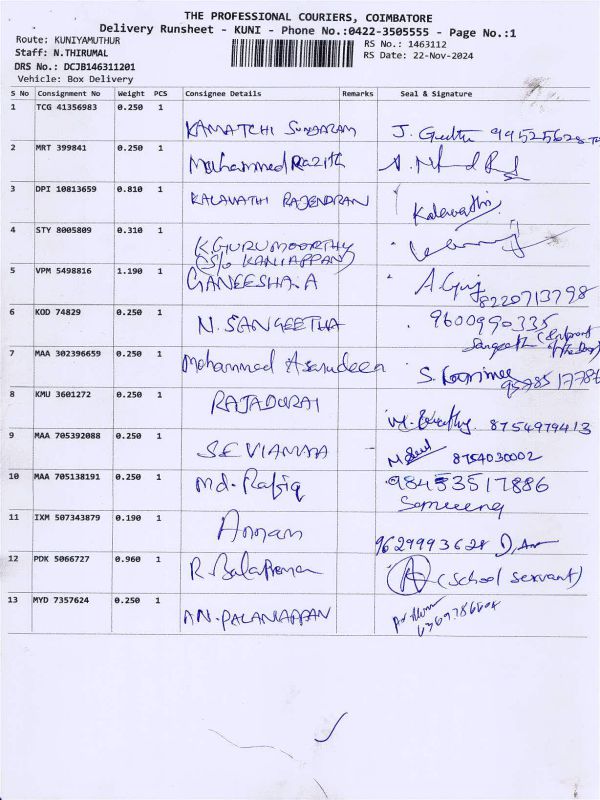 THE PROFESSIONAL COURIERS, COIMBATORE
Delivery Runsheet - KUNI - Phone No.:0422-3505555 - Page No.:1
Route: KUNIYAMUTHUR
RS No.: 1463112
Staff: N.THIRUMAL
RS Date: 22-Nov-2024
DRS No.: DCJB146311201
Vehicle: Box Delivery
S No Consignment No Weight PCS Consignee Details Remarks Seal & Signature
1 TCG 41356983 0.250 1
KAMATCHI SUNDARAM J. Geetha 99525628
2 MRT 399841 0.250 1
Mohammed Razith
3 DPI 10813659 0.810 1
KALAVATHI RAJENDRAN Kalavathi
4 STY 8005809 0.310 1
K.GURUMOORTHY
(S/o KANIAPPAN)
5 VPM 5498816 1.190 1
GANEESHA.A 8220713798
6 KOD 74829 0.250 1
N. SANGEETHA 9600990335
Sangeeth
7 MAA 302396659 0.250 1
Mohammed Asarudeen S.
8 KMU 3601272 0.250 1
RAJADURAI 8754979413
9 MAA 705392088 0.250 1
SEVIAMMA 8754030002
10 MAA 705138191 0.250 1
Md. Rafiq 98453517886
11 IXM 507343879 0.190 1
Annan 9629993628
12 PDK 5066727 0.960 1
R. Balaprema (School servant)
13 MYD 7357624 0.250 1
AN. PALANIAPPAN